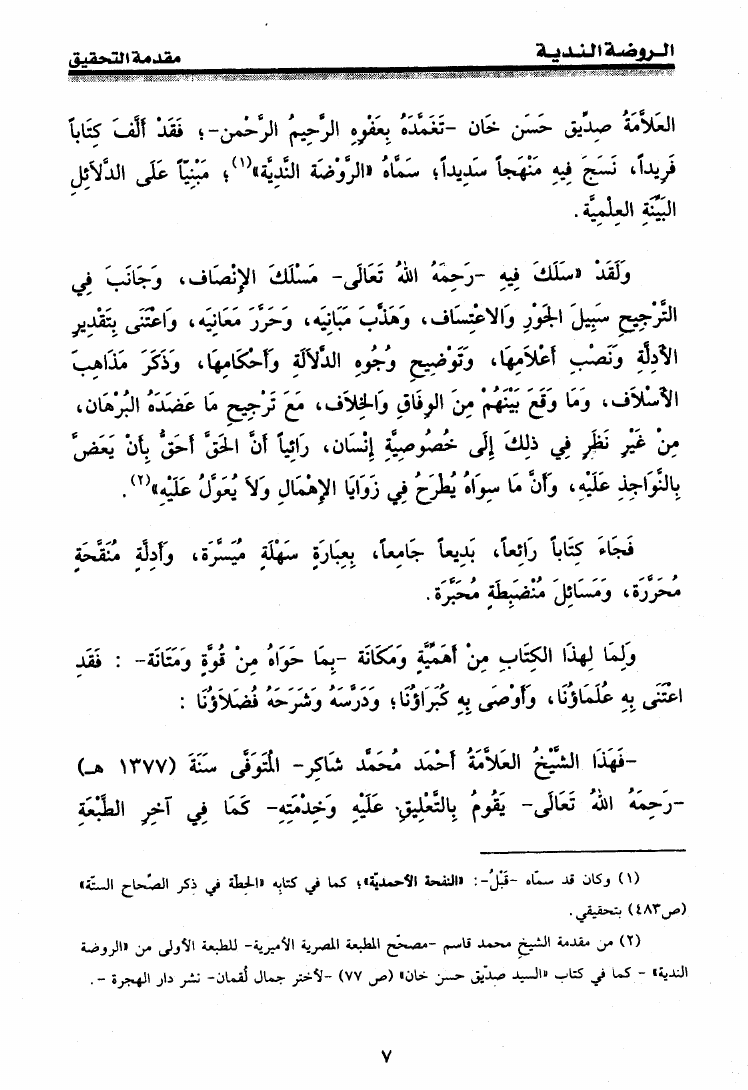 الروضة الندية
مقدمة التحقيق
العَلاَّمَةُ صِدِّيق حَسَن خَان -تَغَمَّدَهُ بِعَفْوِهِ الرَّحِيمُ الرَّحْمن-؛ فَقَدْ أَلَّفَ كِتَاباً
فَرِيداً، نَسَجَ فِيهِ مَنْهَجاً سَدِيداً؛ سَمَّاهُ «الرَّوْضَة النَّدِيَّة»(١)؛ مَبْنِيّاً عَلَى الدَّلاَئِلِ
البَيِّنَةِ العِلْمِيَّة.
وَلَقَدْ «سَلَكَ فِيهِ -رَحِمَهُ اللهُ تَعَالَى- مَسْلَكَ الإِنْصَاف، وَجَانَبَ فِي
التَّرْجِيحِ سَبِيلَ الجَوْرِ وَالاعْتِسَاف، وَهَذَّبَ مَبَانِيَه، وَحَرَّرَ مَعَانِيَه، وَاعْتَنَى بِتَقْدِيرِ
الأدِلَّةِ وَنَصْبِ أَعْلاَمِهَا، وَتَوْضِيحِ وُجُوهِ الدَّلاَلَةِ وَأَحْكَامِهَا، وَذَكَرَ مَذَاهِبَ
الأَسْلاَف، وَمَا وَقَعَ بَيْنَهُمْ مِنَ الوِفَاقِ وَالخِلاَف، مَعَ تَرْجِيحِ مَا عَضَدَهُ البُرْهَان،
مِنْ غَيْرِ نَظَرٍ فِي ذلِكَ إِلَى خُصُوصِيَّةِ إِنْسَان، رَائِياً أَنَّ الحَقَّ أَحَقُّ بِأَنْ يَعَضَّ
بِالنَّوَاجِذِ عَلَيْه، وَأَنَّ مَا سِوَاهُ يُطْرَحُ فِي زَوَايَا الإِهْمَالِ وَلاَ يُعَوَّلُ عَلَيْه»(٢).
فَجَاءَ كِتَاباً رَائِعاً، بَدِيعاً جَامِعاً، بِعِبَارَةٍ سَهْلَةٍ مُيَسَّرَة، وَأَدِلَّةٍ مُنَقَّحَةٍ
مُحَرَّرَة، وَمَسَائِلَ مُنْضَبِطَةٍ مُحَبَّرَة.
وَلِمَا لِهذَا الكِتَابِ مِنْ أَهَمِّيَّةٍ وَمَكَانَة -بِمَا حَوَاهُ مِنْ قُوَّةٍ وَمَتَانَة- : فَقَدِ
اعْتَنَى بِهِ عُلَمَاؤُنَا، وَأَوْصَى بِهِ كُبَرَاؤُنَا؛ وَدَرَّسَهُ وَشَرَحَهُ فُضَلاَؤُنَا :
-فَهَذَا الشَّيْخُ العَلاَّمَةُ أَحْمَد مُحَمَّد شَاكِر- المُتَوَفَّى سَنَةَ (١٣٧٧ هـ)
-رَحِمَهُ اللهُ تَعَالَى- يَقُومُ بِالتَّعْلِيقِ عَلَيْهِ وَخِدْمَتِهِ- كَمَا فِي آخِرِ الطَّبْعَةِ
(١) وكان قد سمّاه -قَبْلُ-: «النفحة الأحمدية»؛ كما في كتابه «الحِطّة في ذكر الصِّحاح الستّة»
(ص٤٨٣) بتحقيقي.
(٢) من مقدمة الشيخ محمد قاسم -مصحّح المطبعة المصرية الأميرية- للطبعة الأولى من «الروضة
الندية» - كما في كتاب «السيد صدّيق حسن خان» (ص ٧٧) -لأختر جمال لُقمان- نشر دار الهجرة -.
٧